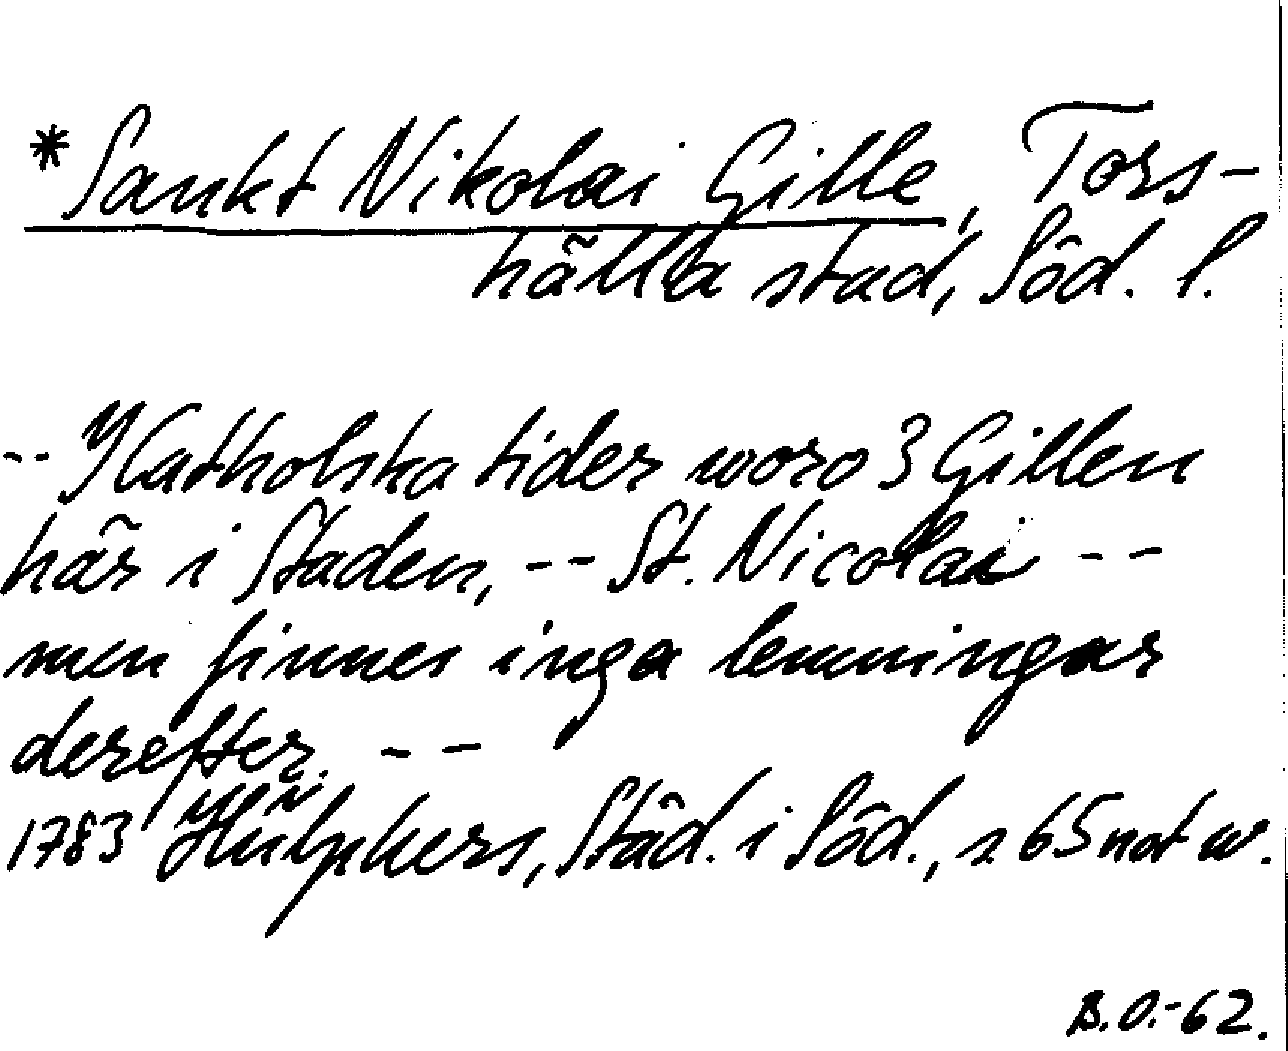 *Sankt Nikolai Gille, Tors-
hälla stad, Söd. l.
-- I Catholska tider woro 3 Gillen
här i Staden, -- St. Nicolai --
men finnes inga lemningar
derefter. --
1783 Hülphers, Städ. i Söd., s 65 not w.
B.O.-62.